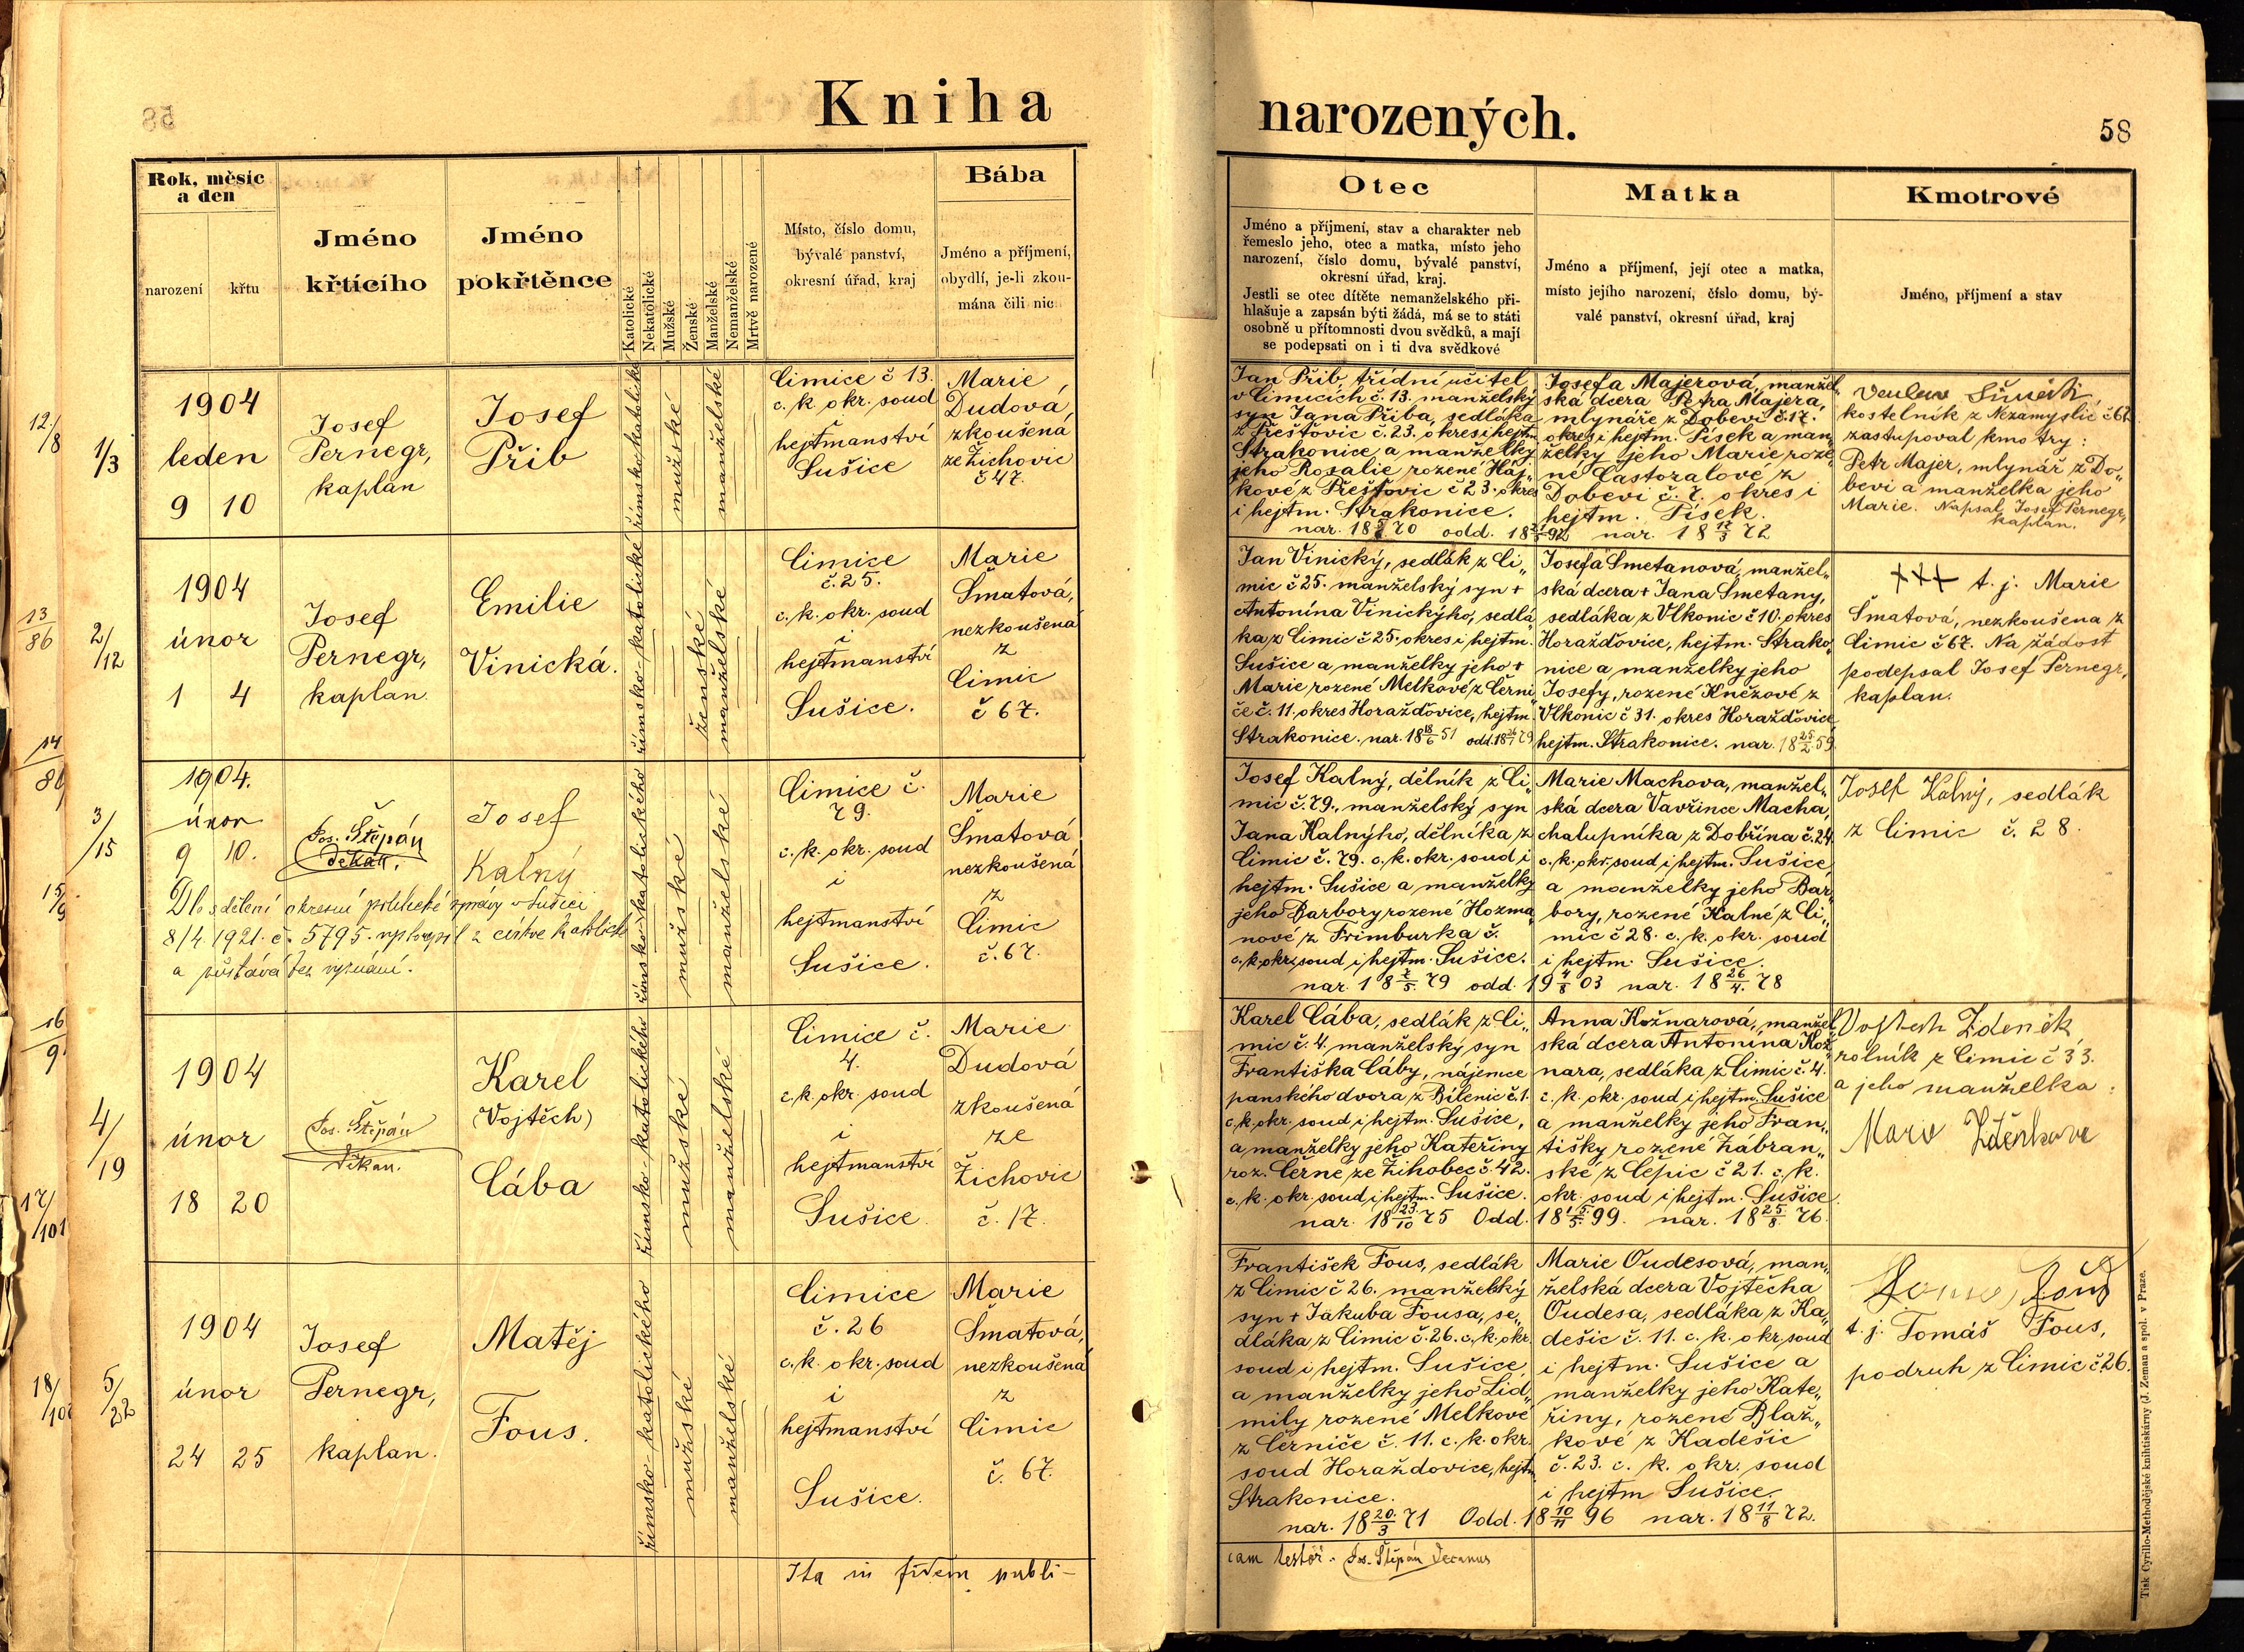 Kniha narozených.
58
Rok, měsíc
a den
narození
křtu
Jméno
křtícího
Jméno
pokřtěnce
Katolické
Nekatolické
Mužské
Ženské
Manželské
Nemanželské
Mrtvě narozené
Místo, číslo domu,
bývalé panství,
okresní úřad, kraj
Bába
Jméno a příjmení,
obydlí, je-li zkou-
mána čili nic
Otec
Jméno a příjmení, stav a charakter neb
řemeslo jeho, otec a matka, místo jeho
narození, číslo domu, bývalé panství,
okresní úřad, kraj.
Jestli se otec dítěte nemanželského při-
hlašuje a zapsán býti žádá, má se to státi
osobně u přítomnosti dvou svědků, a mají
se podepsati on i ti dva svědkové
Matka
Jméno a příjmení, její otec a matka,
místo jejího narození, číslo domu, bý-
valé panství, okresní úřad, kraj
Kmotrové
Jméno, příjmení a stav
12/8
1/3
1904
leden
9 10
Josef
Pernegr,
kaplan
Josef
Přib
římskokatolické
mužské
manželské
Čimice č 13.
c. k. okr. soud
hejtmanství
Sušice
Marie
Dudová,
zkoušená
ze Žichovic
č 47.
Jan Přib, třídní učitel
v Čimicích č. 13. manželský
syn Jana Přiba, sedláka
z Přešťovic č. 23. okres i hejtm.
Strakonice a manželky
jeho Rosalie rozené Háj„
kové z Přešťovic č 23. okres
i hejtm. Strakonice.
nar. 18 70 odd. 18 92
Josefa Majerová, manžel„
ská dcera Petra Majera,
mlynáře z Dobevi č. 17.
okres i hejtm. Písek a man„
želky jeho Marie roze„
né Častoralové z
Dobevi č. 7. okres i
hejtm. Písek.
nar. 18 17/3 72
kostelník z Nezamyslic č 62
zastupoval kmotry:
Petr Majer, mlynář z Do„
bevi a manželka jeho
Marie. Napsal Josef Pernegr,
kaplan.
13/86
2/12
1904
únor
1 4
Josef
Pernegr,
kaplan.
Emilie
Vinická.
římsko-katolické
ženské
manželské
Čimice
č. 25.
c. k. okr. soud
i
hejtmanství
Sušice.
Marie
Šmatová,
nezkoušená
z
Čimic
č 67.
Jan Vinický, sedlák z Či„
mic č 25. manželský syn +
Antonína Vinickýho, sedlá„
ka z Čimic č 25. okres i hejtm.
Sušice a manželky jeho +
Marie rozené Melkové z Černi„
če č. 11. okres Horažďovice, hejtm.
Strakonice. nar. 18 18/6 51 odd. 18 79
Josefa Smetanová, manžel„
ská dcera + Jana Smetany,
sedláka z Vlkonic č 10. okres
Horažďovice, hejtm. Strako„
nice a manželky jeho
Josefy, rozené Kněžové z
Vlkonic č 31. okres Horažďovice
hejtm. Strakonice. nar. 18 25/2 59
+++ t. j. Marie
Šmatová, nezkoušena z
Čimic č 67. Na žádost
podepsal Josef Pernegr,
kaplan.
14
3/15
1904.
únor
9 10.
Jos. Štěpán
děkan.
Josef
Kalný
římsko-katolického
mužské
manželské
Čimice č.
79.
c. k. okr. soud
i
hejtmanství
Sušice.
Marie
Šmatová
nezkoušená
z
Čimic
č. 67.
Dle sdělení okresní politické správy v Sušici
8/4 1921. č. 5795. vystoupil z církve katolické
a zůstává bez vyznání.
Josef Kalný, dělník z Či„
mic č. 79., manželský syn
Jana Kalnýho, dělníka z
Čimic č. 79. c. k. okr. soud i
hejtm. Sušice a manželky
jeho Barbory rozené Hozma„
nové z Frimburka č.
c. k. okr. soud i hejtm. Sušice.
nar. 18 79 odd. 19 4/8 03
Marie Machova, manžel„
ská dcera Vavřince Macha,
chalupníka z Dobřína č. 24
c. k. okr. soud i hejtm. Sušice,
a manželky jeho Bar„
bory, rozené Kalné z Či„
mic č 28. c. k. okr. soud
i hejtm. Sušice.
nar. 18 26/4. 78
Josef Kalný, sedlák
z Čimic č. 28.
16/9
4/19
1904
únor
18 20
Jos. Štěpán
děkan.
Karel
(Vojtěch)
Cába
římsko-katolického
mužské
manželské
Čimice č.
4.
c. k. okr. soud
i
hejtmanství
Sušice.
Marie
Dudová
zkoušená
ze
Žichovic
č. 17.
Karel Cába, sedlák z Či„
mic č. 4. manželský syn
Františka Cáby, nájemce
panského dvora z Bílenic č. 1.
c. k. okr. soud i hejtm. Sušice,
a manželky jeho Kateřiny
roz. Černé ze Žihobec č. 42.
c. k. okr. soud i hejtm. Sušice.
nar. 18 23/10 75 Odd. 18 99.
Anna Kožnarová, manžel„
ská dcera Antonína Kož„
nara, sedláka z Čimic č 4.
c. k. okr. soud i hejtm. Sušice
a manželky jeho Fran„
tišky rozené Zábran„
ské z Čepic č 21. c. k.
okr. soud i hejtm. Sušice.
nar. 18 25/8 76.
Vojtěch Zdeněk
rolník z Čimic č 33.
a jeho manželka:
Marie Zdeňkova
17/101
18/
5/22
1904
únor
24 25
Josef
Pernegr,
kaplan.
Matěj
Fous.
římsko-katolického
mužské
manželské
Čimice
č. 26
c. k. okr. soud
i
hejtmanství
Sušice.
Marie
Šmatová,
nezkoušená
z
Čimic
č. 67.
František Fous, sedlák
z Čimic č 26. manželský
syn + Jakuba Fousa, se„
dláka z Čimic č. 26. c. k. okr.
soud i hejtm. Sušice
a manželky jeho Lid„
mily rozené Melkové
z Černiče č. 11. c. k. okr.
soud Horažďovice, hejtm.
Strakonice.
nar. 18 20./3 71 Odd. 18 10/11 96
Marie Oudesová, man„
želská dcera Vojtěcha
Oudesa, sedláka z Ka„
dešic č. 11. c. k. okr. soud
i hejtm. Sušice a
manželky jeho Kate„
řiny, rozené Blaž„
kové z Kadešic
č. 23. c. k. okr. soud
i hejtm Sušice.
nar. 18 11/8 72.
t. j. Tomáš Fous,
podruh z Čimic č 26.
Ita in fidem publi-
cam testor. Jos. Štěpán Decanus
Tisk Cyrillo-Methodějské knihtiskárny (J. Zeman a spol. v Praze.